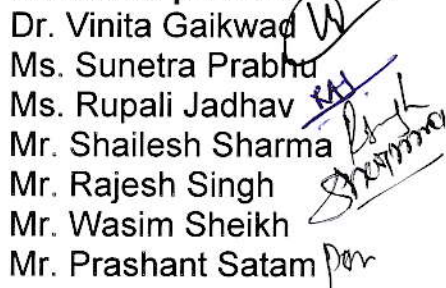 Dr. Vinita Gaikwad
Ms. Sunetra Prabhu
Ms. Rupali Jadhav
Mr. Shailesh Sharma
Mr. Rajesh Singh Sharma
Mr. Wasim Sheikh
Mr. Prashant Satam